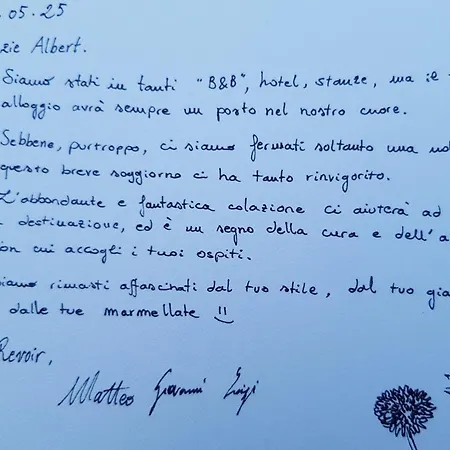 .05.25
zie Albert.
Siamo stati in tanti "B&B", hotel, stanze, ma il
alloggio avrà sempre un posto nel nostro cuore.
Sebbene, purtroppo, ci siamo fermati soltanto una no
questo breve soggiorno ci ha tanto rinvigorito.
L'abbondante e fantastica colazione ci aiuterà ad
destinazione, ed è un segno della cura e dell'a
on cui accogli i tuoi ospiti.
siamo rimasti affascinati dal tuo stile, dal tuo gia
dalle tue marmellate
Revoir,
Matteo Giovanni Luigi